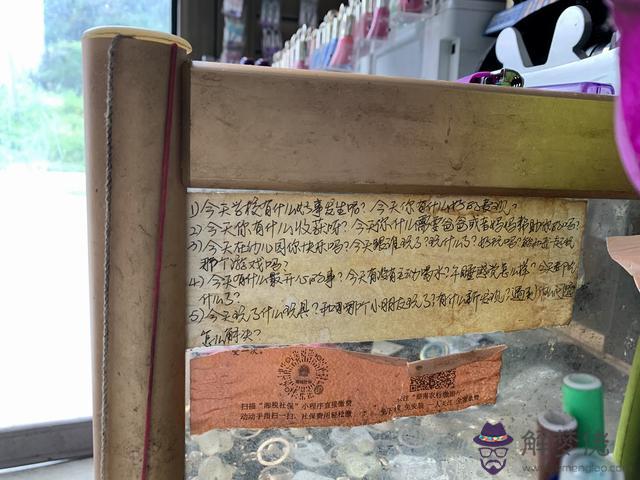 1)今天学校有什么好事发生吗?今天你有什么好的表现?
2)今天你有什么收获呀?今天你什么需要爸爸或者妈妈帮助你的吗?
3)今天在幼儿园你快乐吗?今天跟谁玩了?玩什么了?好玩吗?
那个游戏吗?
4)今天有什么最开心的事?今天有没有主动喝水?午睡感觉怎么样?今天都
什么了?
5)今天玩了什么玩具?和哪个小朋友玩了?有什么新
怎么解决?
扫描“湘税社保”小程序直接缴费
动动手指扫一扫,社保费用轻松缴
解梦佬
www.jiemenglao.com